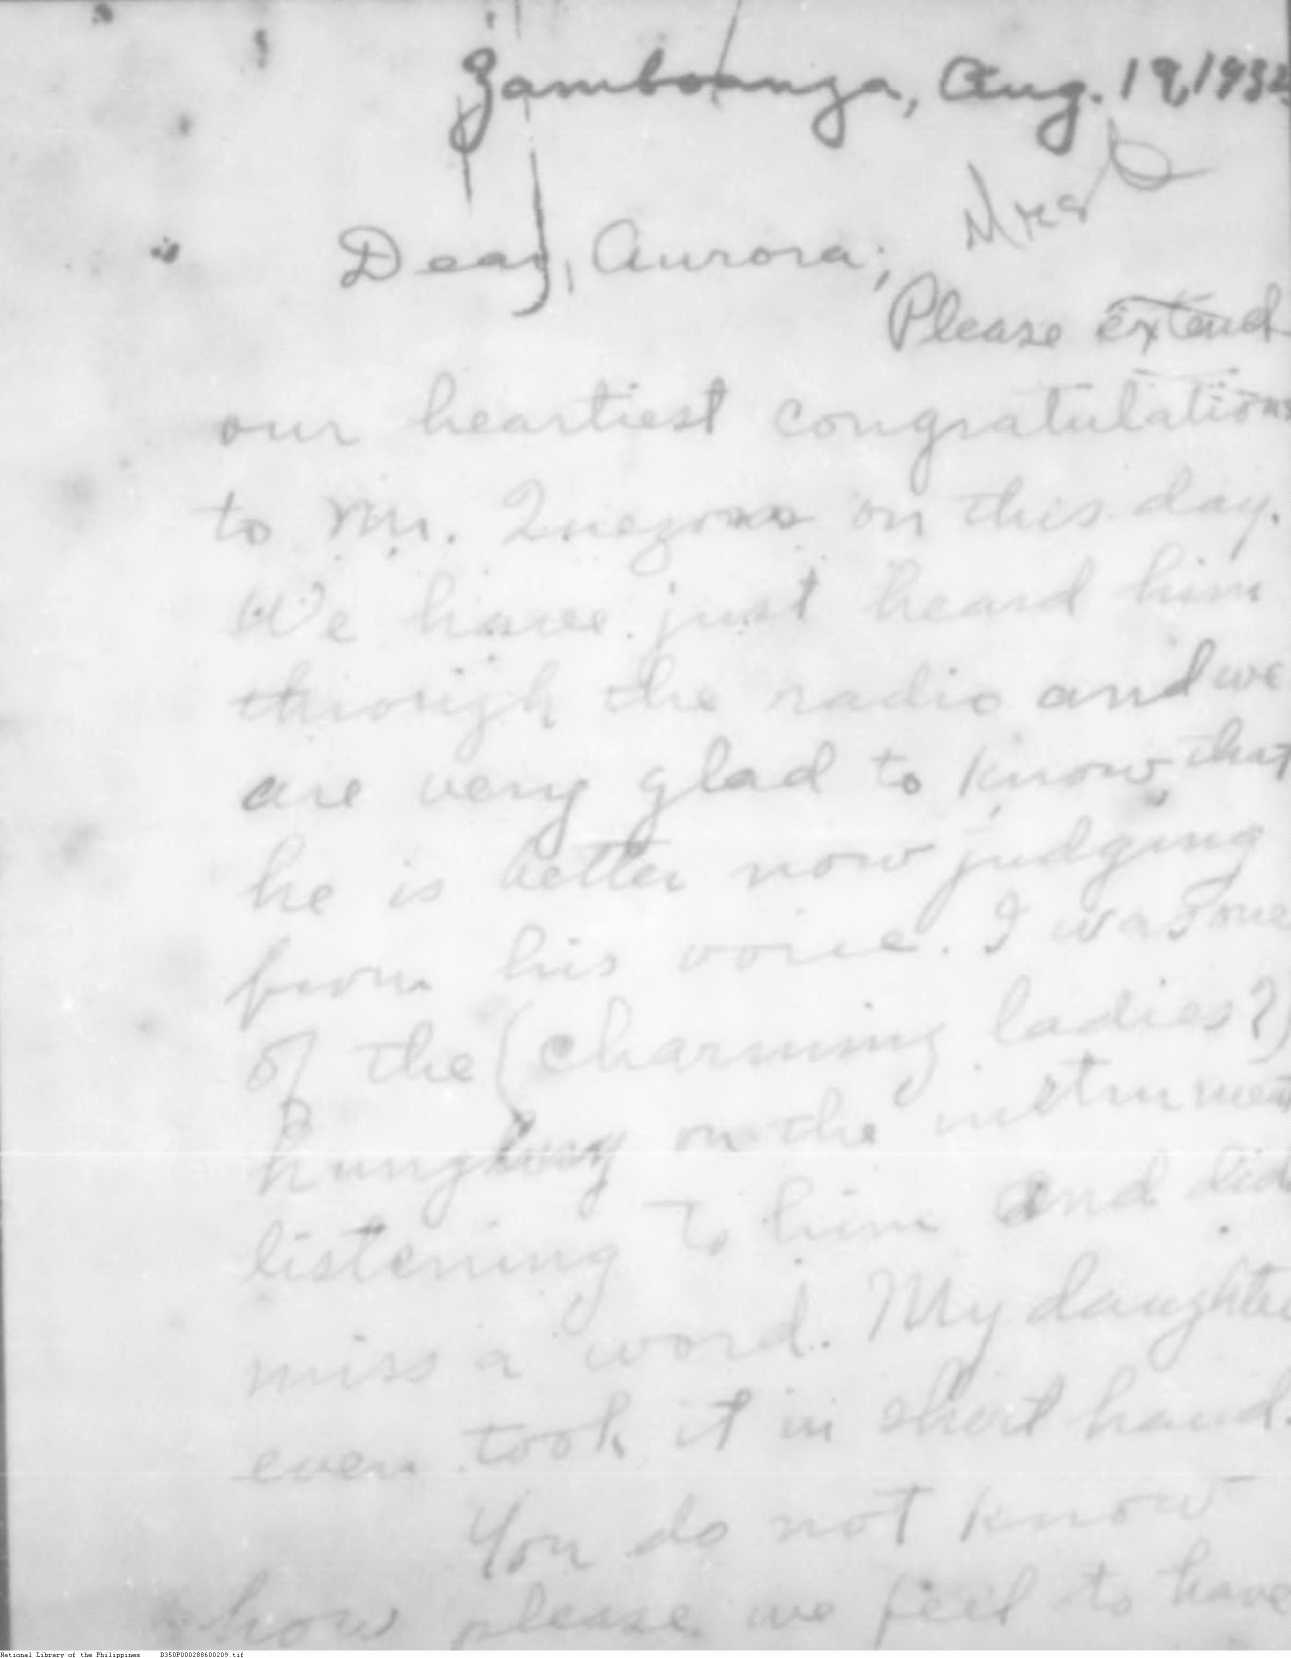 Zamboanga, Aug. 19, 1932
Mrs
Dear, Aurora;
Please extend
our heartiest congratulations
to Mr. Quezon on this day.
We have just heard him
through the radio and we
are very glad to know, that
he is better now judging
from his voice. I was one
of the (charming ladies?)
hung on the instrument
listening to him and did
miss a word. My daughter
even took it in short hand.
You do not know
how please we feel to have
National Library of the Philippines D350P000288600209.tif